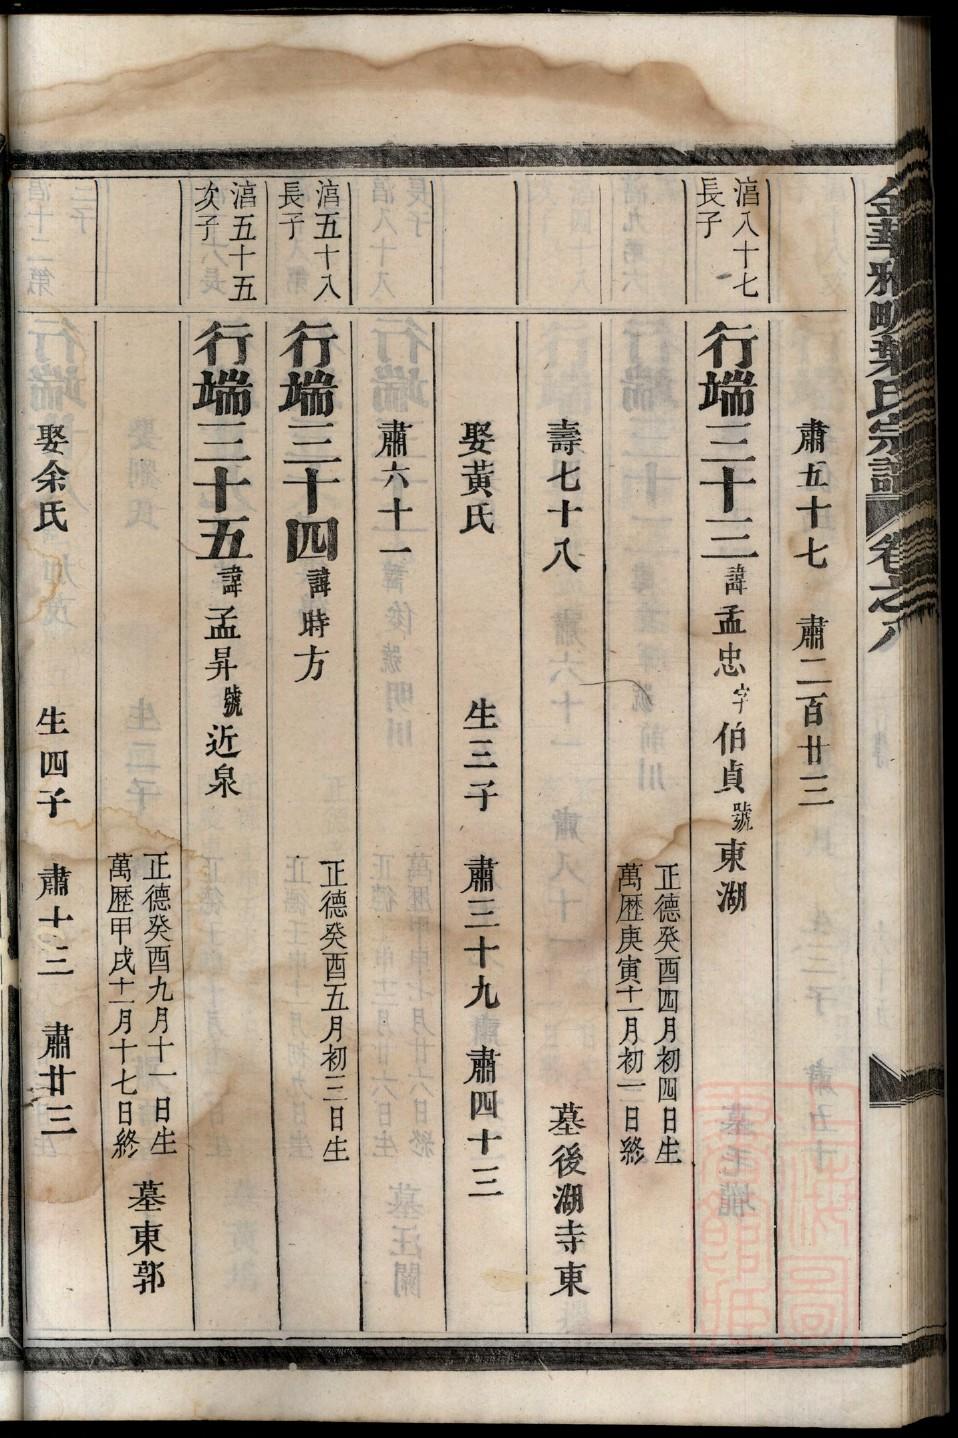 金華雅畈葉氏宗譜 卷之八
肅五十七 肅二百廿三
湻八十七
長子
行端三十三諱孟忠字伯貞號東湖
正德癸酉四月初四日生
萬歷庚寅十一月初二日終
壽七十八 墓後湖寺東
娶黃氏 生三子 肅三十九 肅四十三
肅六十一
湻五十八
長子
行端三十四諱時方
正德癸酉五月初三日生
湻五十五
次子
行端三十五諱孟昇號近泉
正德癸酉九月十一日生
萬歷甲戌十一月十七日終
墓東郭
娶余氏 生四子 肅十三 肅廿三